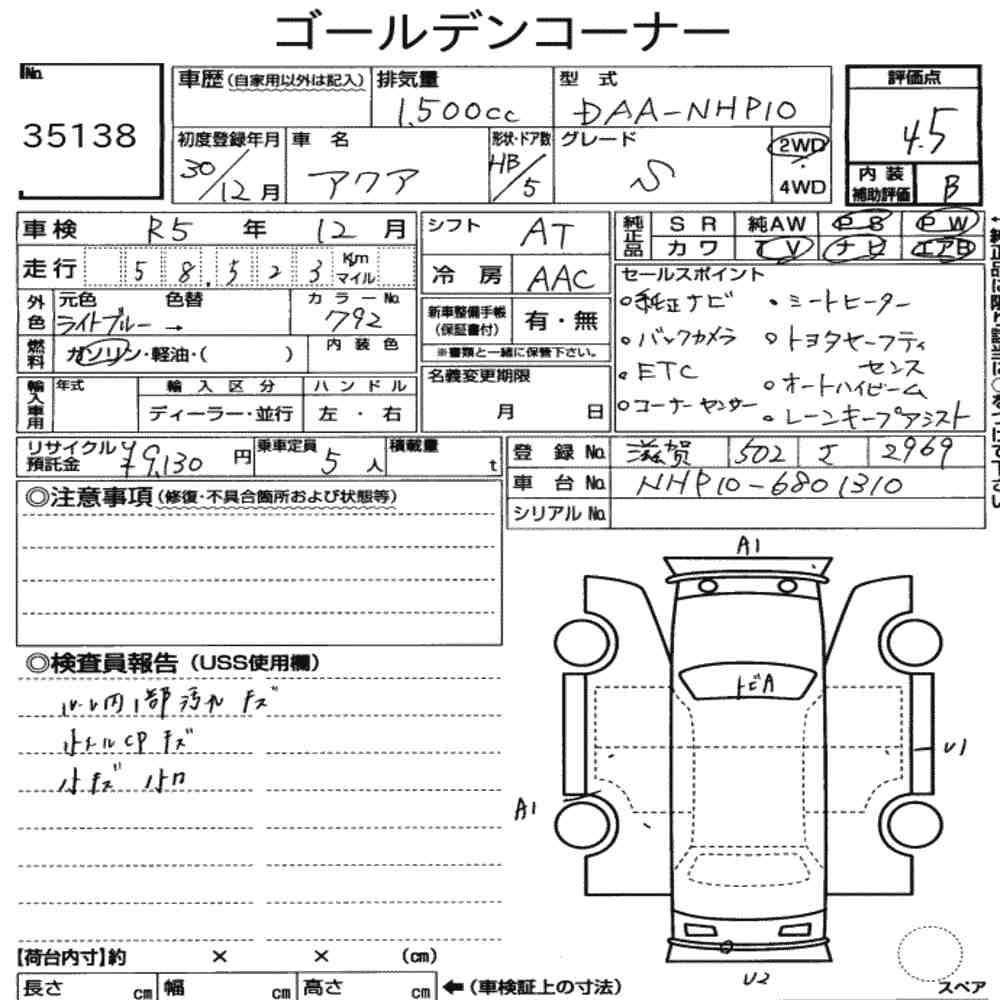 ゴールデンコーナー
No.
35138
車歴(自家用以外は記入) 排気量 型 式
1,500cc DAA-NHP10
初度登録年月 車 名 形状・ドア数 グレード
30/12月 アクア HB/5 S
2WD
4WD
評価点
4.5
内装補助評価 B
車検 R5 年 12 月
走行 58,523 Km マイル
外色 元色 色替 カラーNo.
ライトブルー → 792
燃料 ガソリン・軽油・( ) 内装色
輸入車用 年式 輸入区分 ハンドル
ディーラー・並行 左・右
シフト AT
冷房 AAC
新車整備手帳(保証書付) 有・無
※書類と一緒に保管下さい。
名義変更期限
月 日
純正品 SR 純AW PS PW
カワ TV ナビ エアB
セールスポイント
○純正ナビ ・シートヒーター
・バックカメラ ○トヨタセーフティ
センス
・ETC ○オートハイビーム
○コーナーセンサー ・レーンキープアシスト
リサイクル預託金 ¥9,130 円 乗車定員 5 人 積載量 t
登録No. 滋賀 502 さ 2969
車台No. NHP10-6801310
シリアルNo.
◎注意事項(修復・不具合箇所および状態等)
◎検査員報告(USS使用欄)
小キズ
A1
トビA
U1
A1
U2
【荷台内寸】約 × × (cm)
長さ cm 幅 cm 高さ cm ←(車検証上の寸法)
スペア